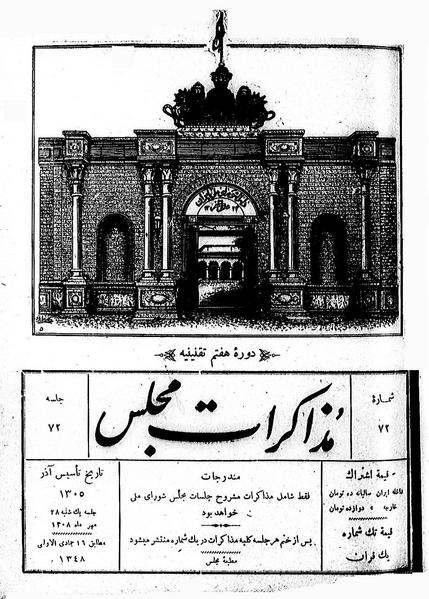 دورهٔ هفتم تقنینیه
شمارهٔ
۷۲
مذاکرات مجلس
جلسه
۷۲
قیمة اشتراك
داخله ایران سالیانه ده تومان
خارجه » دوازده تومان
قیمة تك شماره
یك قران
مندرجات
فقط شامل مذاکرات مشروح جلسات مجلس شورای ملی
خواهد بود
پس از ختم هر جلسه کلیه مذاکرات در یك شماره منتشر میشود
مطبعهٔ مجلس
تاریخ تأسیس آذر
۱۳۰۵
جلسه یك شنبه ۲۸
مهر ماه ۱۳۰۸
مطابق ۱۶ جمادی الاولی
۱۳۴۸